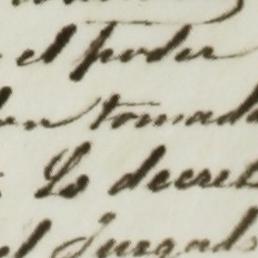 el poder
tomad
Lo decret
el Juzgad